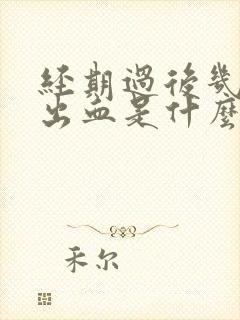 經期過後幾
出血是什麼
禾尔